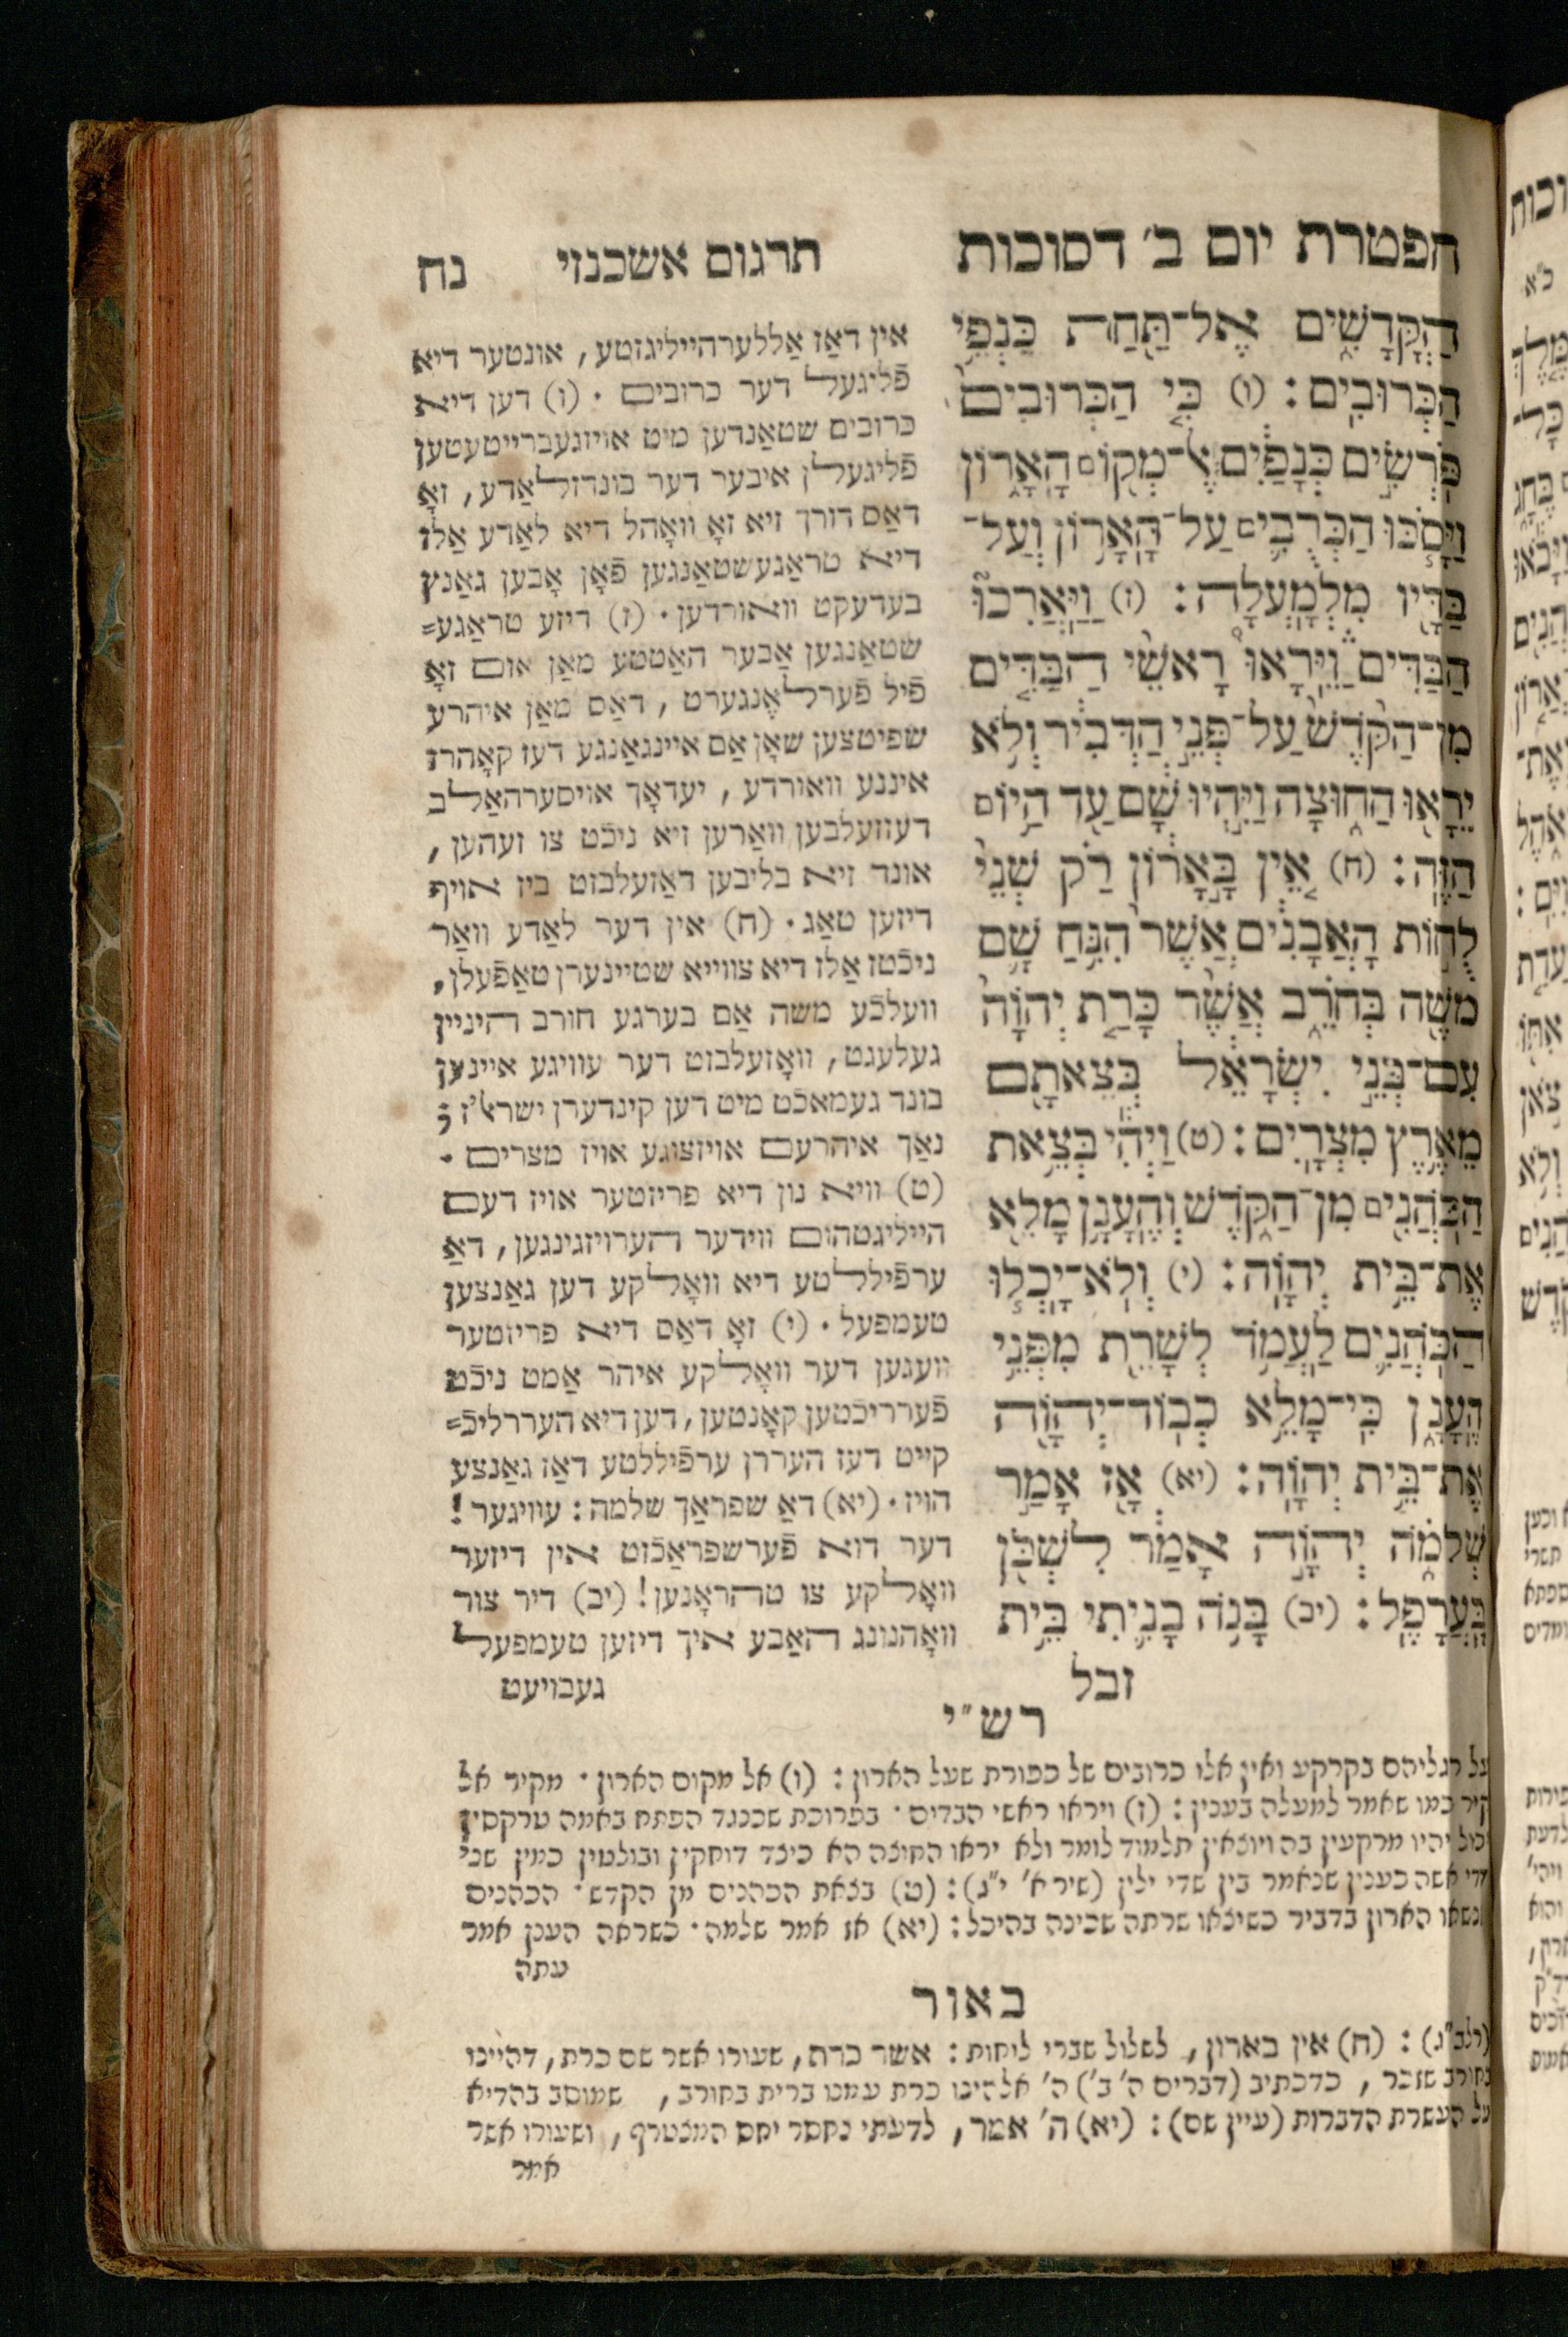 הפטרת יום ב׳ דסוכות
תרגום אשכנזי
נח
הַקֳּדָשִׁים אֶל־תַּחַת כַּנְפֵי
הַכְּרוּבִים: (ו) כִּי הַכְּרוּבִים
פֹּרְשִׂים כְּנָפַיִם אֶל־מְקוֹם הָאָרוֹן
וַיָּסֹכּוּ הַכְּרֻבִים עַל־הָאָרוֹן וְעַל־
בַּדָּיו מִלְמָעְלָה: (ז) וַיַּאֲרִכוּ
הַבַּדִּים וַיֵּרָאוּ רָאשֵׁי הַבַּדִּים
מִן־הַקֹּדֶשׁ עַל־פְּנֵי הַדְּבִיר וְלֹא
יֵרָאוּ הַחוּצָה וַיִּהְיוּ שָׁם עַד הַיּוֹם
הַזֶּה: (ח) אֵין בָּאָרוֹן רַק שְׁנֵי
לֻחוֹת הָאֲבָנִים אֲשֶׁר הִנִּחַ שָׁם
מֹשֶׁה בְּחֹרֵב אֲשֶׁר כָּרַת יְהוָֹה
עִם־בְּנֵי יִשְׂרָאֵל בְּצֵאתָם
מֵאֶרֶץ מִצְרָיִם: (ט) וַיְהִי בְּצֵאת
הַכֹּהֲנִים מִן־הַקֹּדֶשׁ וְהֶעָנָן מָלֵא
אֶת־בֵּית יְהוָֹה: (י) וְלֹא־יָכְלוּ
הַכֹּהֲנִים לַעֲמֹד לְשָׁרֵת מִפְּנֵי
הֶעָנָן כִּי־מָלֵא כְבוֹד־יְהוָֹה
אֶת־בֵּית יְהוָֹה: (יא) אָז אָמַר
שְׁלֹמֹה יְהוָֹה אָמַר לִשְׁכֹּן
בָּעֲרָפֶל: (יב) בָּנֹה בָנִיתִי בֵּית
זבל
אין דאַז אַללערהייליגזטע, אונטער דיא
פֿליגעל דער כרובים. (ו) דען דיא
כרובים שטאַנדען מיט אויזגעברייטעטען
פֿליגעלן איבער דער בונדזלאַדע, זאָ
דאַס דורך זיא זאָ וואָהל דיא לאַדע אַלז
דיא טראַגעשטאַנגען פֿאָן אָבען גאַנץ
בעדעקט וואורדען. (ז) דיזע טראַגע=
שטאַנגען אַבער האַטטע מאַן אום זאָ
פֿיל פֿערלאֶנגערט, דאַס מאַן איהרע
שפיטצען שאָן אַם איינגאַנגע דעז קאָהרז
איננע וואורדע, יעדאָך אויסערהאַלב
דעזזעלבען וואַרען זיא ניכֿט צו זעהען,
אונד זיא בליבען דאַזעלבזט ביז אויף
דיזען טאַג. (ח) אין דער לאַדע וואַר
ניכֿטז אַלז דיא צווייא שטיינערן טאַפֿעלן,
וועלכֿע משה אַם בערגע חורב היניין
געלעגט, וואָזעלבזט דער עוויגע איינען
בונד געמאכֿט מיט דען קינדערן ישראלז;
נאַך איהרעם אויזצוגע אויז מצרים.
(ט) וויא נון דיא פריזטער אויז דעם
הייליגטהום ווידער הערויזגינגען, דאַ
ערפֿיללטע דיא וואָלקע דען גאַנצען
טעמפעל. (י) זאָ דאַס דיא פריזטער
וועגען דער וואָלקע איהר אַמט ניכֿט
פֿערריכֿטען קאָנטען, דען דיא העררליכֿ=
קייט דעז העררן ערפֿיללטע דאַז גאַנצע
הויז. (יא) דאַ שפראַך שלמה: עוויגער!
דער דוא פֿערשפראַכֿזט אין דיזער
וואָלקע צו טהראָנען! (יב) דיר צור
וואָהנונג האַבע איך דיזען טעמפעל
געבויעט
רש״י
על רגליהם בקרקע ואין אלו כרובים של כפורת שעל הארון: (ו) אל מקום הארון. מקיר אל
קיר כמו שאמר למעלה בענין: (ז) ויראו ראשי הבדים. בפרוכת שכנגד הפתח באמה טרקסין
יכול יהיו מרקעין בה ויוצאין תלמוד לומר ולא יראו החוצה הא כיצד דוחקין ובולטין כמין שני
דדי אשה כענין שנאמר בין שדי ילין (שיר א׳ י״ג): (ט) בצאת הכהנים מן הקדש. הכהנים
שנשאו הארון בדביר כשיצאו שרתה שכינה בהיכל: (יא) אז אמר שלמה. כשראה הענן אמר
עתה
באור
(רלב״ג): (ח) אין בארון, לשלול שברי לוחות: אשר כרת, שעורו אשר שם כרת, דהיינו
בחורב שזכר, כדכתיב (דברים ה׳ ב׳) ה׳ אלהינו כרת עמנו ברית בחורב, שמוסב בהדיא
על העשרת הדברות (עיין שם): (יא) ה׳ אמר, לדעתי נחסר יחס המצטרף, ושעורו אשר
אמר